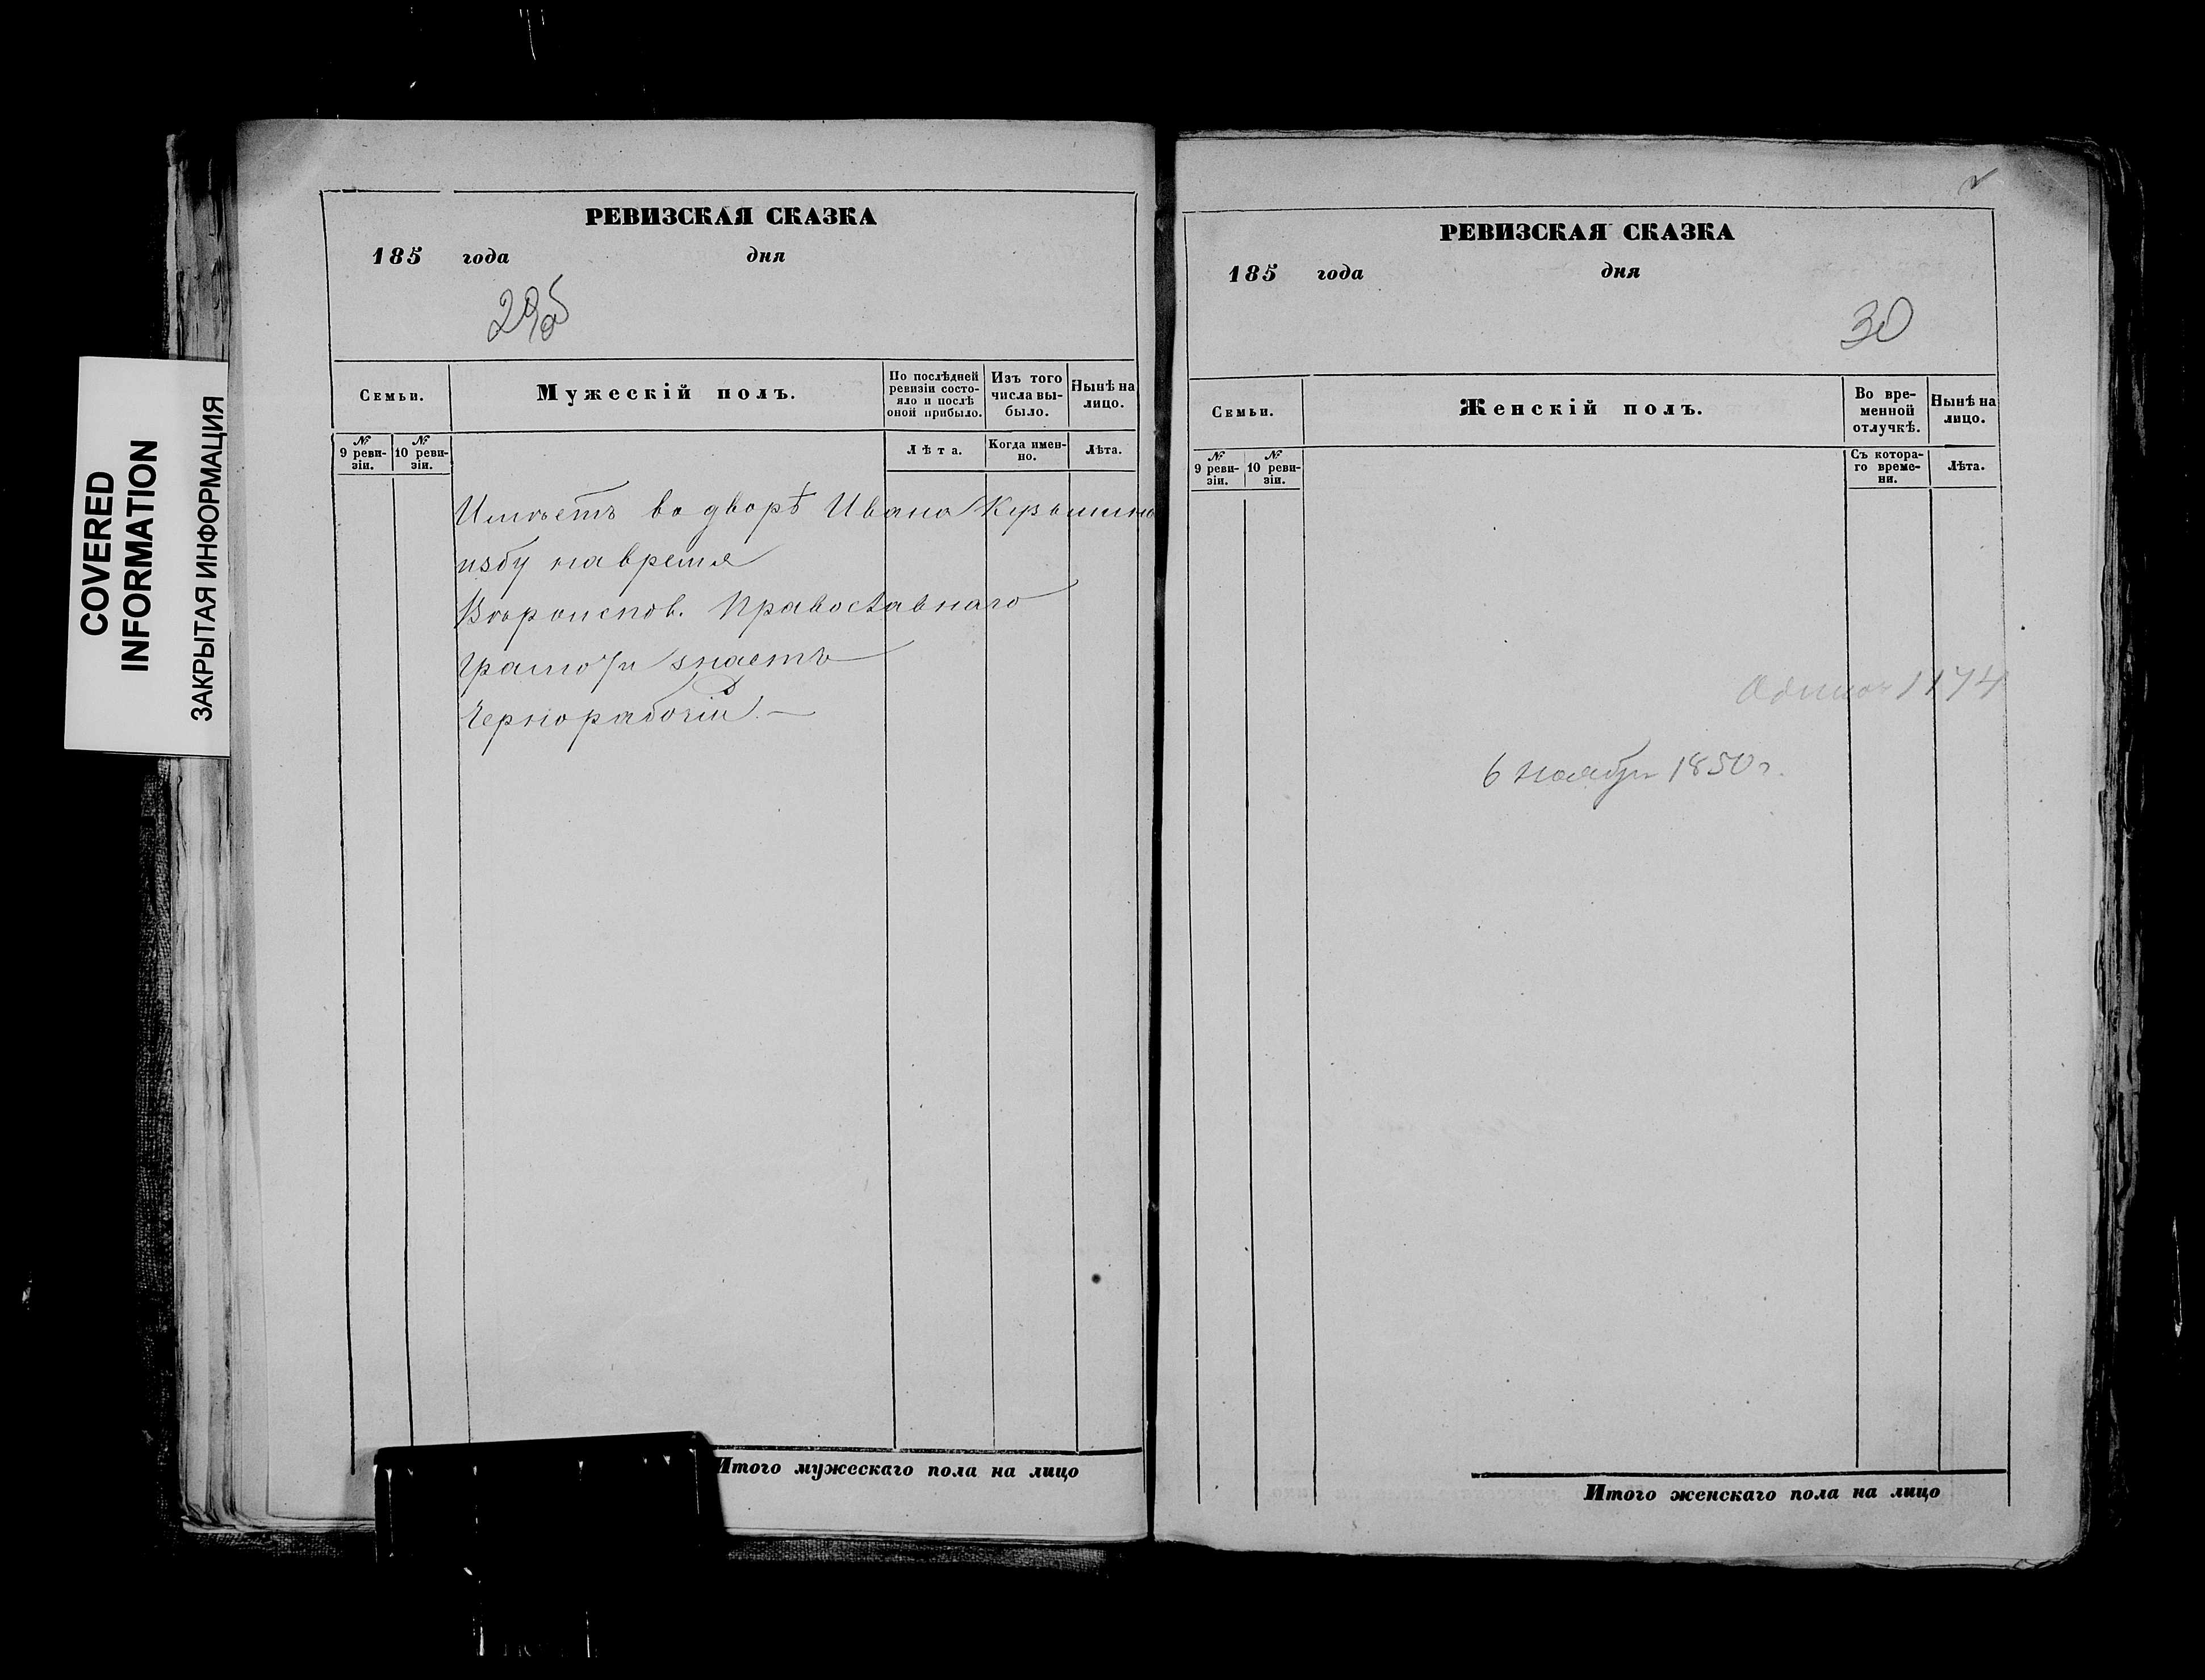 COVERED
INFORMATION
ЗАКРЫТАЯ ИНФОРМАЦИЯ
РЕВИЗСКАЯ СКАЗКА
185 года дня
Семьи.
Мужескій полъ.
По послѣдней ревизіи состо-
яло и послѣ
оной прибыло.
Изъ того
числа вы-
было.
Нынѣ на
лицо.
№
9 реви-
зіи.
№
10 реви-
зіи.
Лѣта.
Когда имен-
но.
Лѣта.
Имѣетъ во дворѣ Ивана Кузьмина
избу на время
Вѣроиспов. Православнаго
грамоту знаетъ
Чернорабочій. —
Итого мужескаго пола на лицо
РЕВИЗСКАЯ СКАЗКА
185 года дня
30
Семьи.
Женскій полъ.
Во вре-
менной
отлучкѣ.
Нынѣ на
лицо.
№
9 реви-
зіи.
№
10 реви-
зіи.
Съ котора-
го време-
ни.
Лѣта.
1174
6 ноября 1850 г.
Итого женскаго пола на лицо